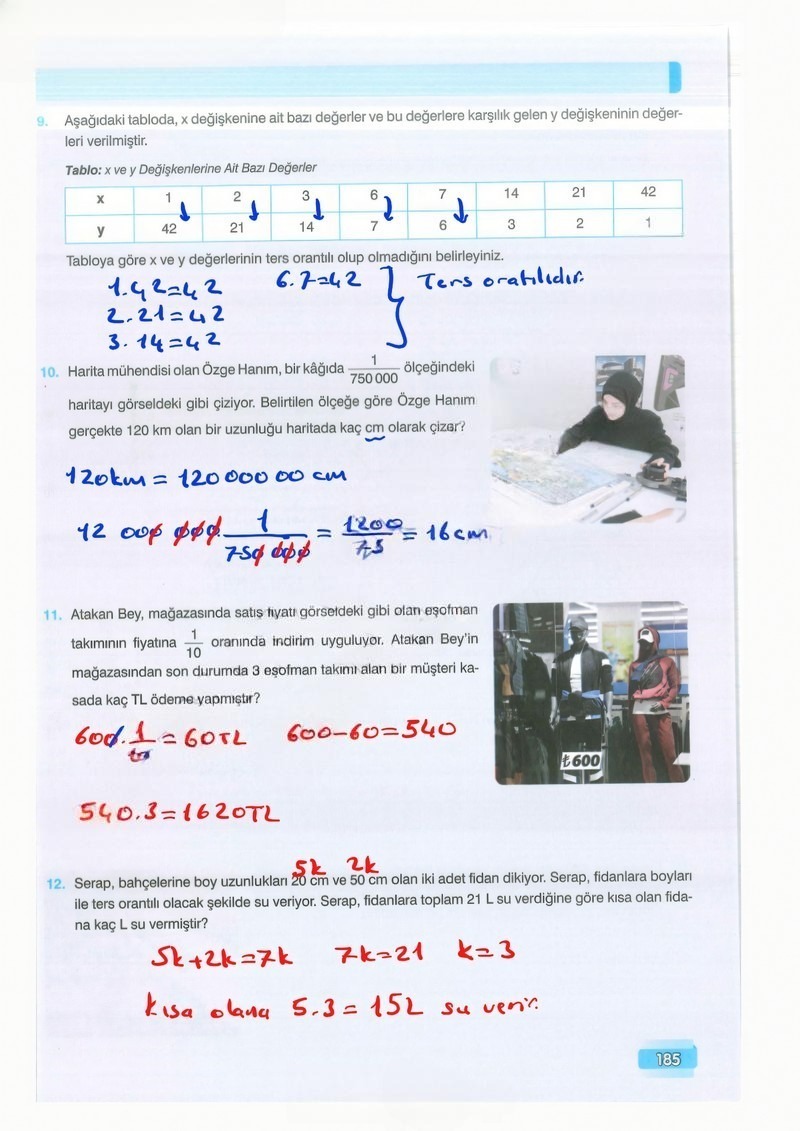 9. Aşağıdaki tabloda, x değişkenine ait bazı değerler ve bu değerlere karşılık gelen y değişkeninin değer-
leri verilmiştir.
Tablo: x ve y Değişkenlerine Ait Bazı Değerler
x 1 2 3 6 7 14 21 42
y 42 21 14 7 6 3 2 1
Tabloya göre x ve y değerlerinin ters orantılı olup olmadığını belirleyiniz.
1.42=42 6.7=42 } Ters oratılıdır.
2.21=42
3.14=42
10. Harita mühendisi olan Özge Hanım, bir kâğıda 1/750 000 ölçeğindeki
haritayı görseldeki gibi çiziyor. Belirtilen ölçeğe göre Özge Hanım
gerçekte 120 km olan bir uzunluğu haritada kaç cm olarak çizer?
120km = 120 000 00 cm
12 000 000 . 1/750 000 = 1200/75 = 16 cm
11. Atakan Bey, mağazasında satış fiyatı görseldeki gibi olan eşofman
takımının fiyatına 1/10 oranında indirim uyguluyor. Atakan Bey'in
mağazasından son durumda 3 eşofman takımı alan bir müşteri ka-
sada kaç TL ödeme yapmıştır?
₺600
600.1/10 = 60TL 600-60=540
540.3=1620TL
5k 2k
12. Serap, bahçelerine boy uzunlukları 20 cm ve 50 cm olan iki adet fidan dikiyor. Serap, fidanlara boyları
ile ters orantılı olacak şekilde su veriyor. Serap, fidanlara toplam 21 L su verdiğine göre kısa olan fida-
na kaç L su vermiştir?
5k+2k=7k 7k=21 k=3
kısa olana 5.3=15L su verir.
185